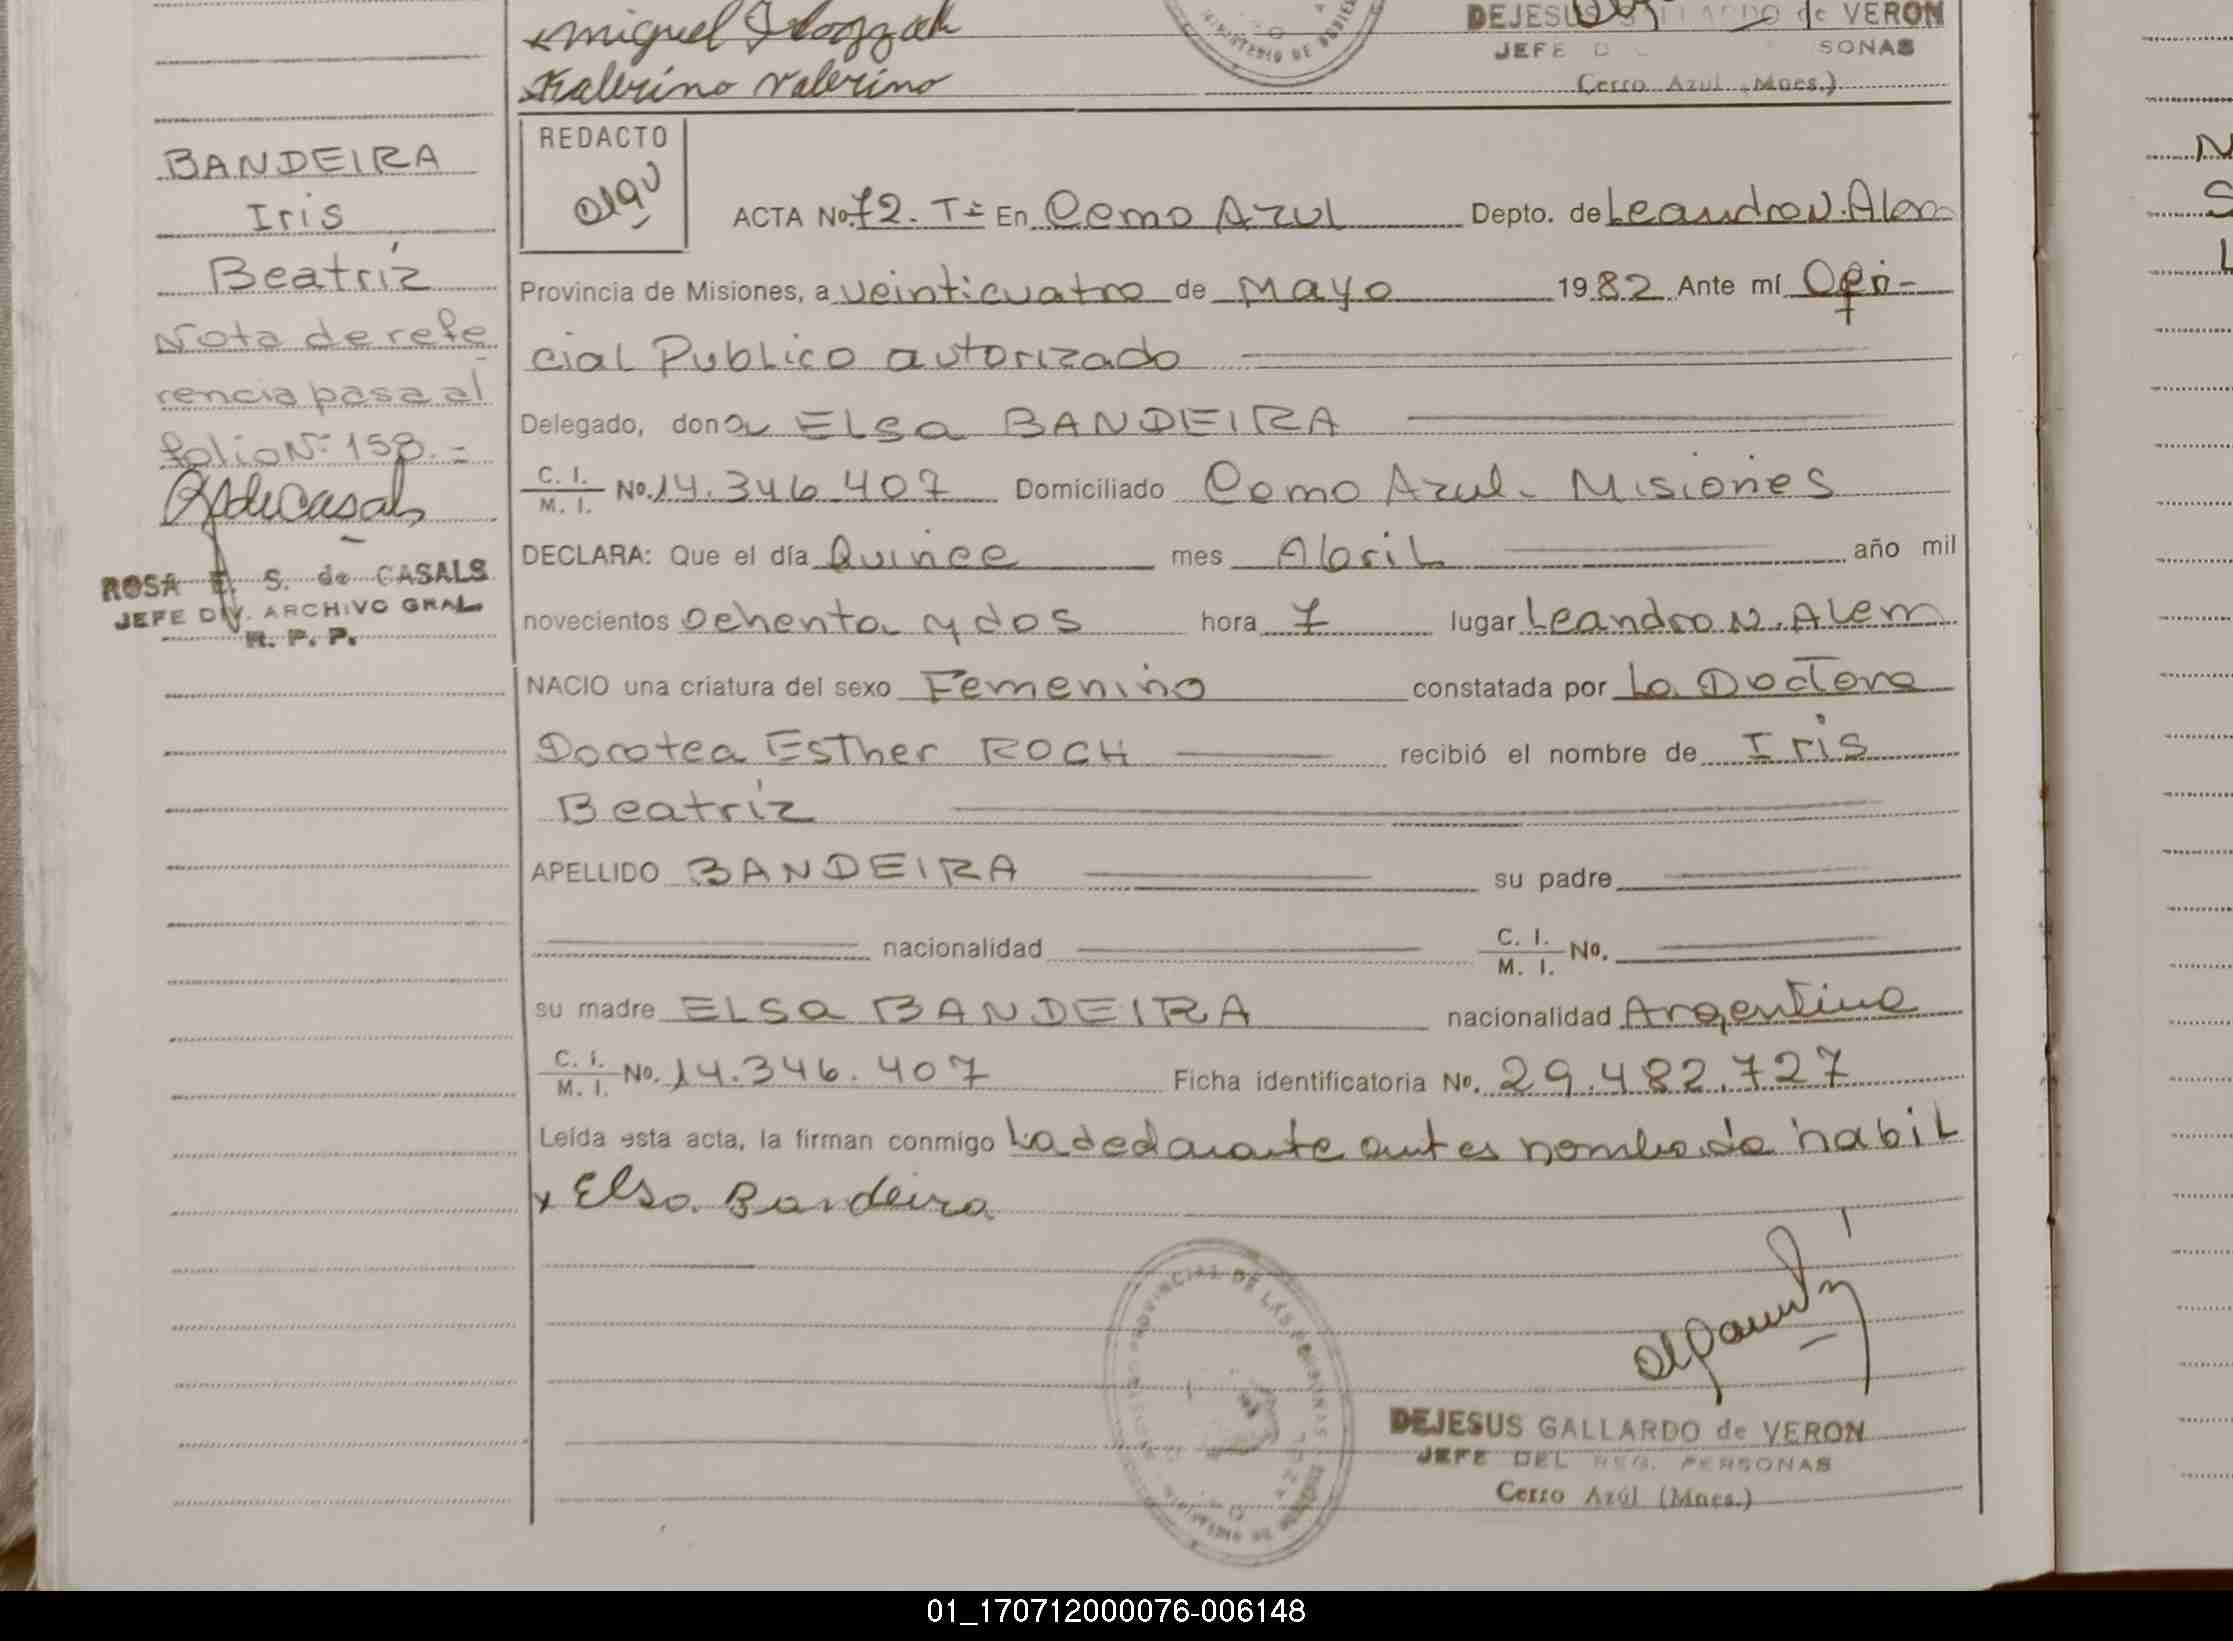 Miguel
Valerino Valerino
DEJESUS GALLARDO de VERON
JEFE D SONAS
Cerro Azul (Mnes.)
BANDEIRA
Iris
Beatríz
Nota de refe
rencia pasa al
folio Nº 158.=
ROSA E. S. de CASALS
JEFE DIV. ARCHIVO GRAL
R. P. P.
REDACTO
ACTA No. 72. Tº En Cerro Azul Depto. de Leandro N. Alem
Provincia de Misiones, a veinticuatro de Mayo 1982 Ante mí Ofi-
cial Publico autorizado
Delegado, dona ELSa BANDEIRA
C. I.
M. I. No. 14.346.407 Domiciliado Cerro Azul. Misiones
DECLARA: Que el día Quince mes Abril año mil
novecientos Ochenta y dos hora 7 lugar Leandro N. Alem
NACIO una criatura del sexo Femenino constatada por La Doctora
Dorotea Esther ROCH recibió el nombre de Iris
Beatríz
APELLIDO BANDEIRA su padre
nacionalidad C. I.
M. I. No.
su madre ELSa BANDEIRA nacionalidad Argentina
C. I.
M. I. No. 14.346.407 Ficha identificatoria No. 29.482.727
Leída esta acta, la firman conmigo La declarante antes nombrada habil
x Elsa Bandeira
DEJESUS GALLARDO de VERON
JEFE DEL REG. PERSONAS
Cerro Azúl (Mnes.)
01_170712000076-006148